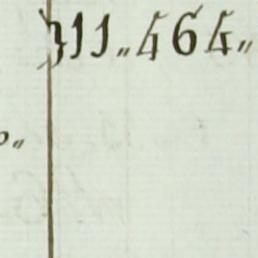 311„464„
0„